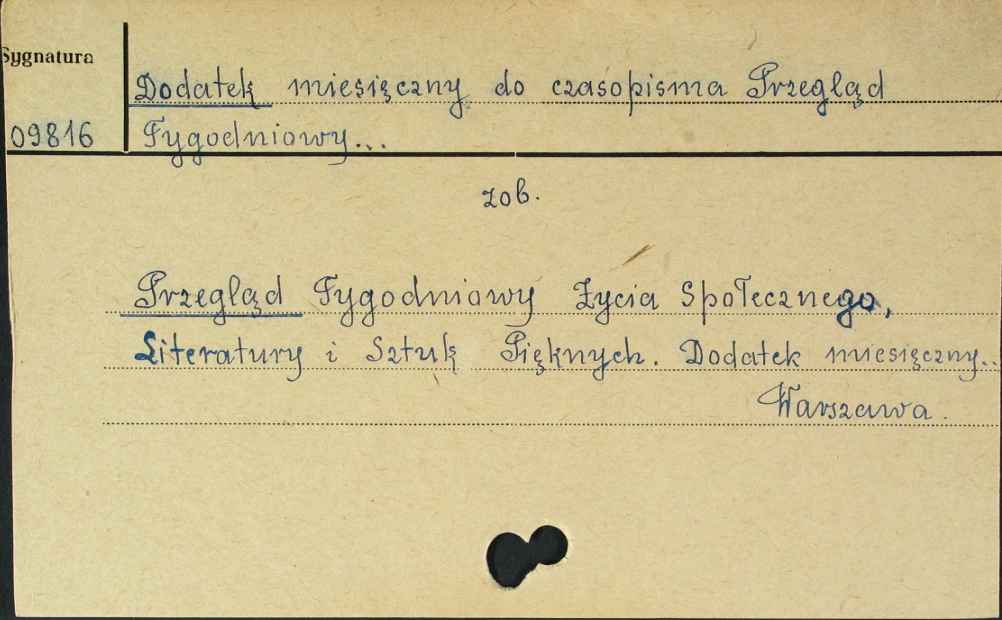 Sygnatura
Dodatek miesięczny do czasopisma Przegląd
09816 Tygodniowy...
zob.
Przegląd Tygodniowy Życia Społecznego,
Literatury i Sztuk Pięknych. Dodatek miesięczny..
Warszawa.